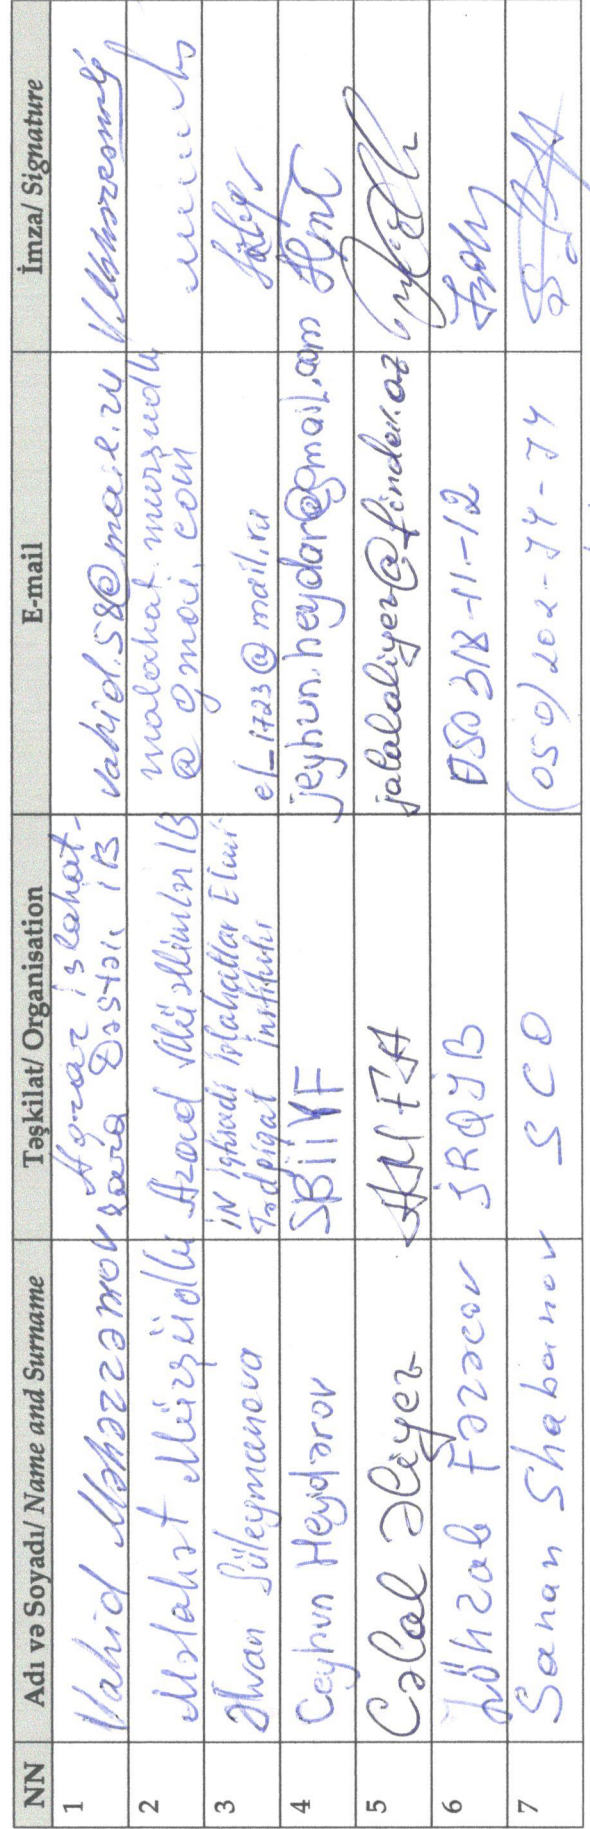 NN Adı və Soyadı/ Name and Surname Təşkilat/ Organisation E-mail İmza/ Signature
1 Vahid Məhərrəmov Aqrar islahat-
lara Dəstək İB vahid.58@mail.ru
2 Məlahət Mürşüdlü Azad Müəllimlər İB malahat.murşudlu
@ gmail.com
3 Əlvan Süleymanova İN İqtisadi İslahatlar Elmi-
Tədqiqat İnstitutu el_1723@mail.ru
4 Ceyhun Heydərov SBİİYF jeyhun.heydar@gmail.com
5 Cəlal Əliyev AMFA jalalaliyev@finder.az
6 Zöhrab Fərəcov 050 318-11-12
7 Sanan Shabanov SCO (050) 202-74-74